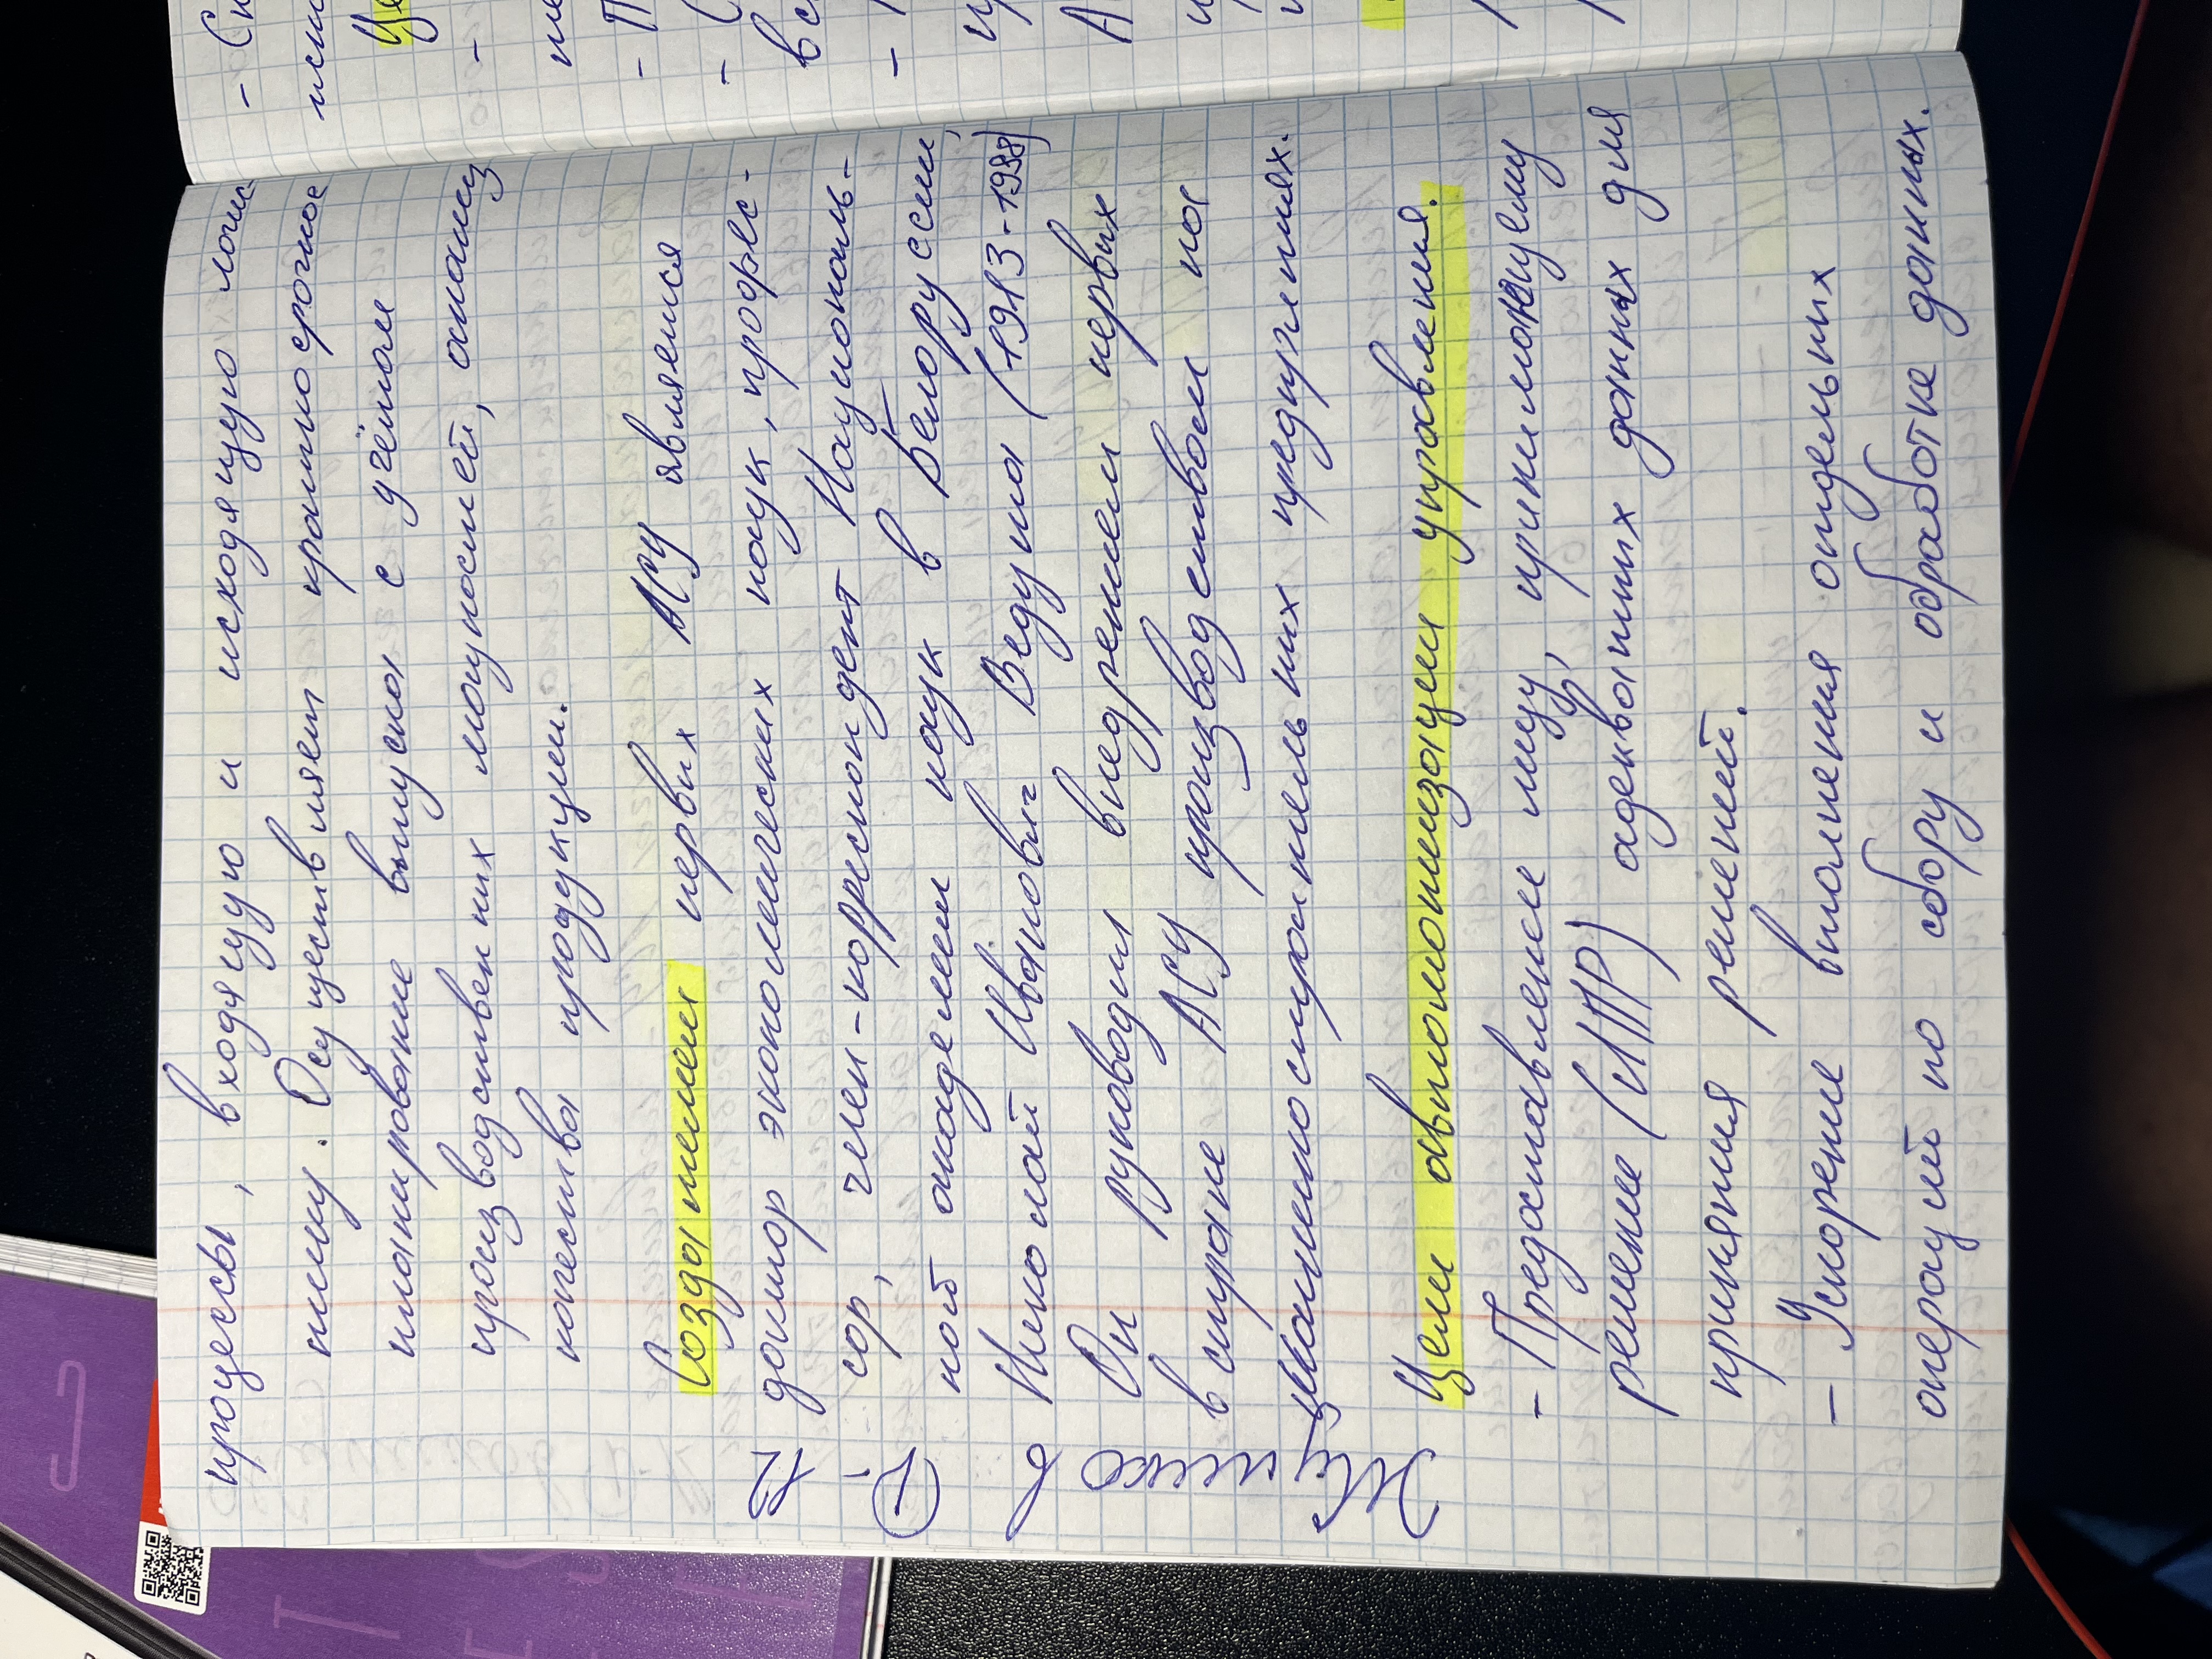 процессы, входящую и исходящую логи-
стику. Осуществляет краткосрочное
планирование выпуска с учётом
производственных мощностей, анализ
качества продукции.
Создателем первых АСУ является
доктор экономических наук, профес-
сор, член-корреспондент Националь-
ной академии наук в Белоруссии,
Николай Иванович Ведута (1913-1998)
Он руководил внедрением первых
в стране АСУ производством на
машиностроительных предприятиях.
Цели автоматизации управления.
- Предоставление лицу, принимающему
решение (ЛПР) адекватных данных для
принятия решений.
- Ускорение выполнения отдельных
операций по сбору и обработке данных.